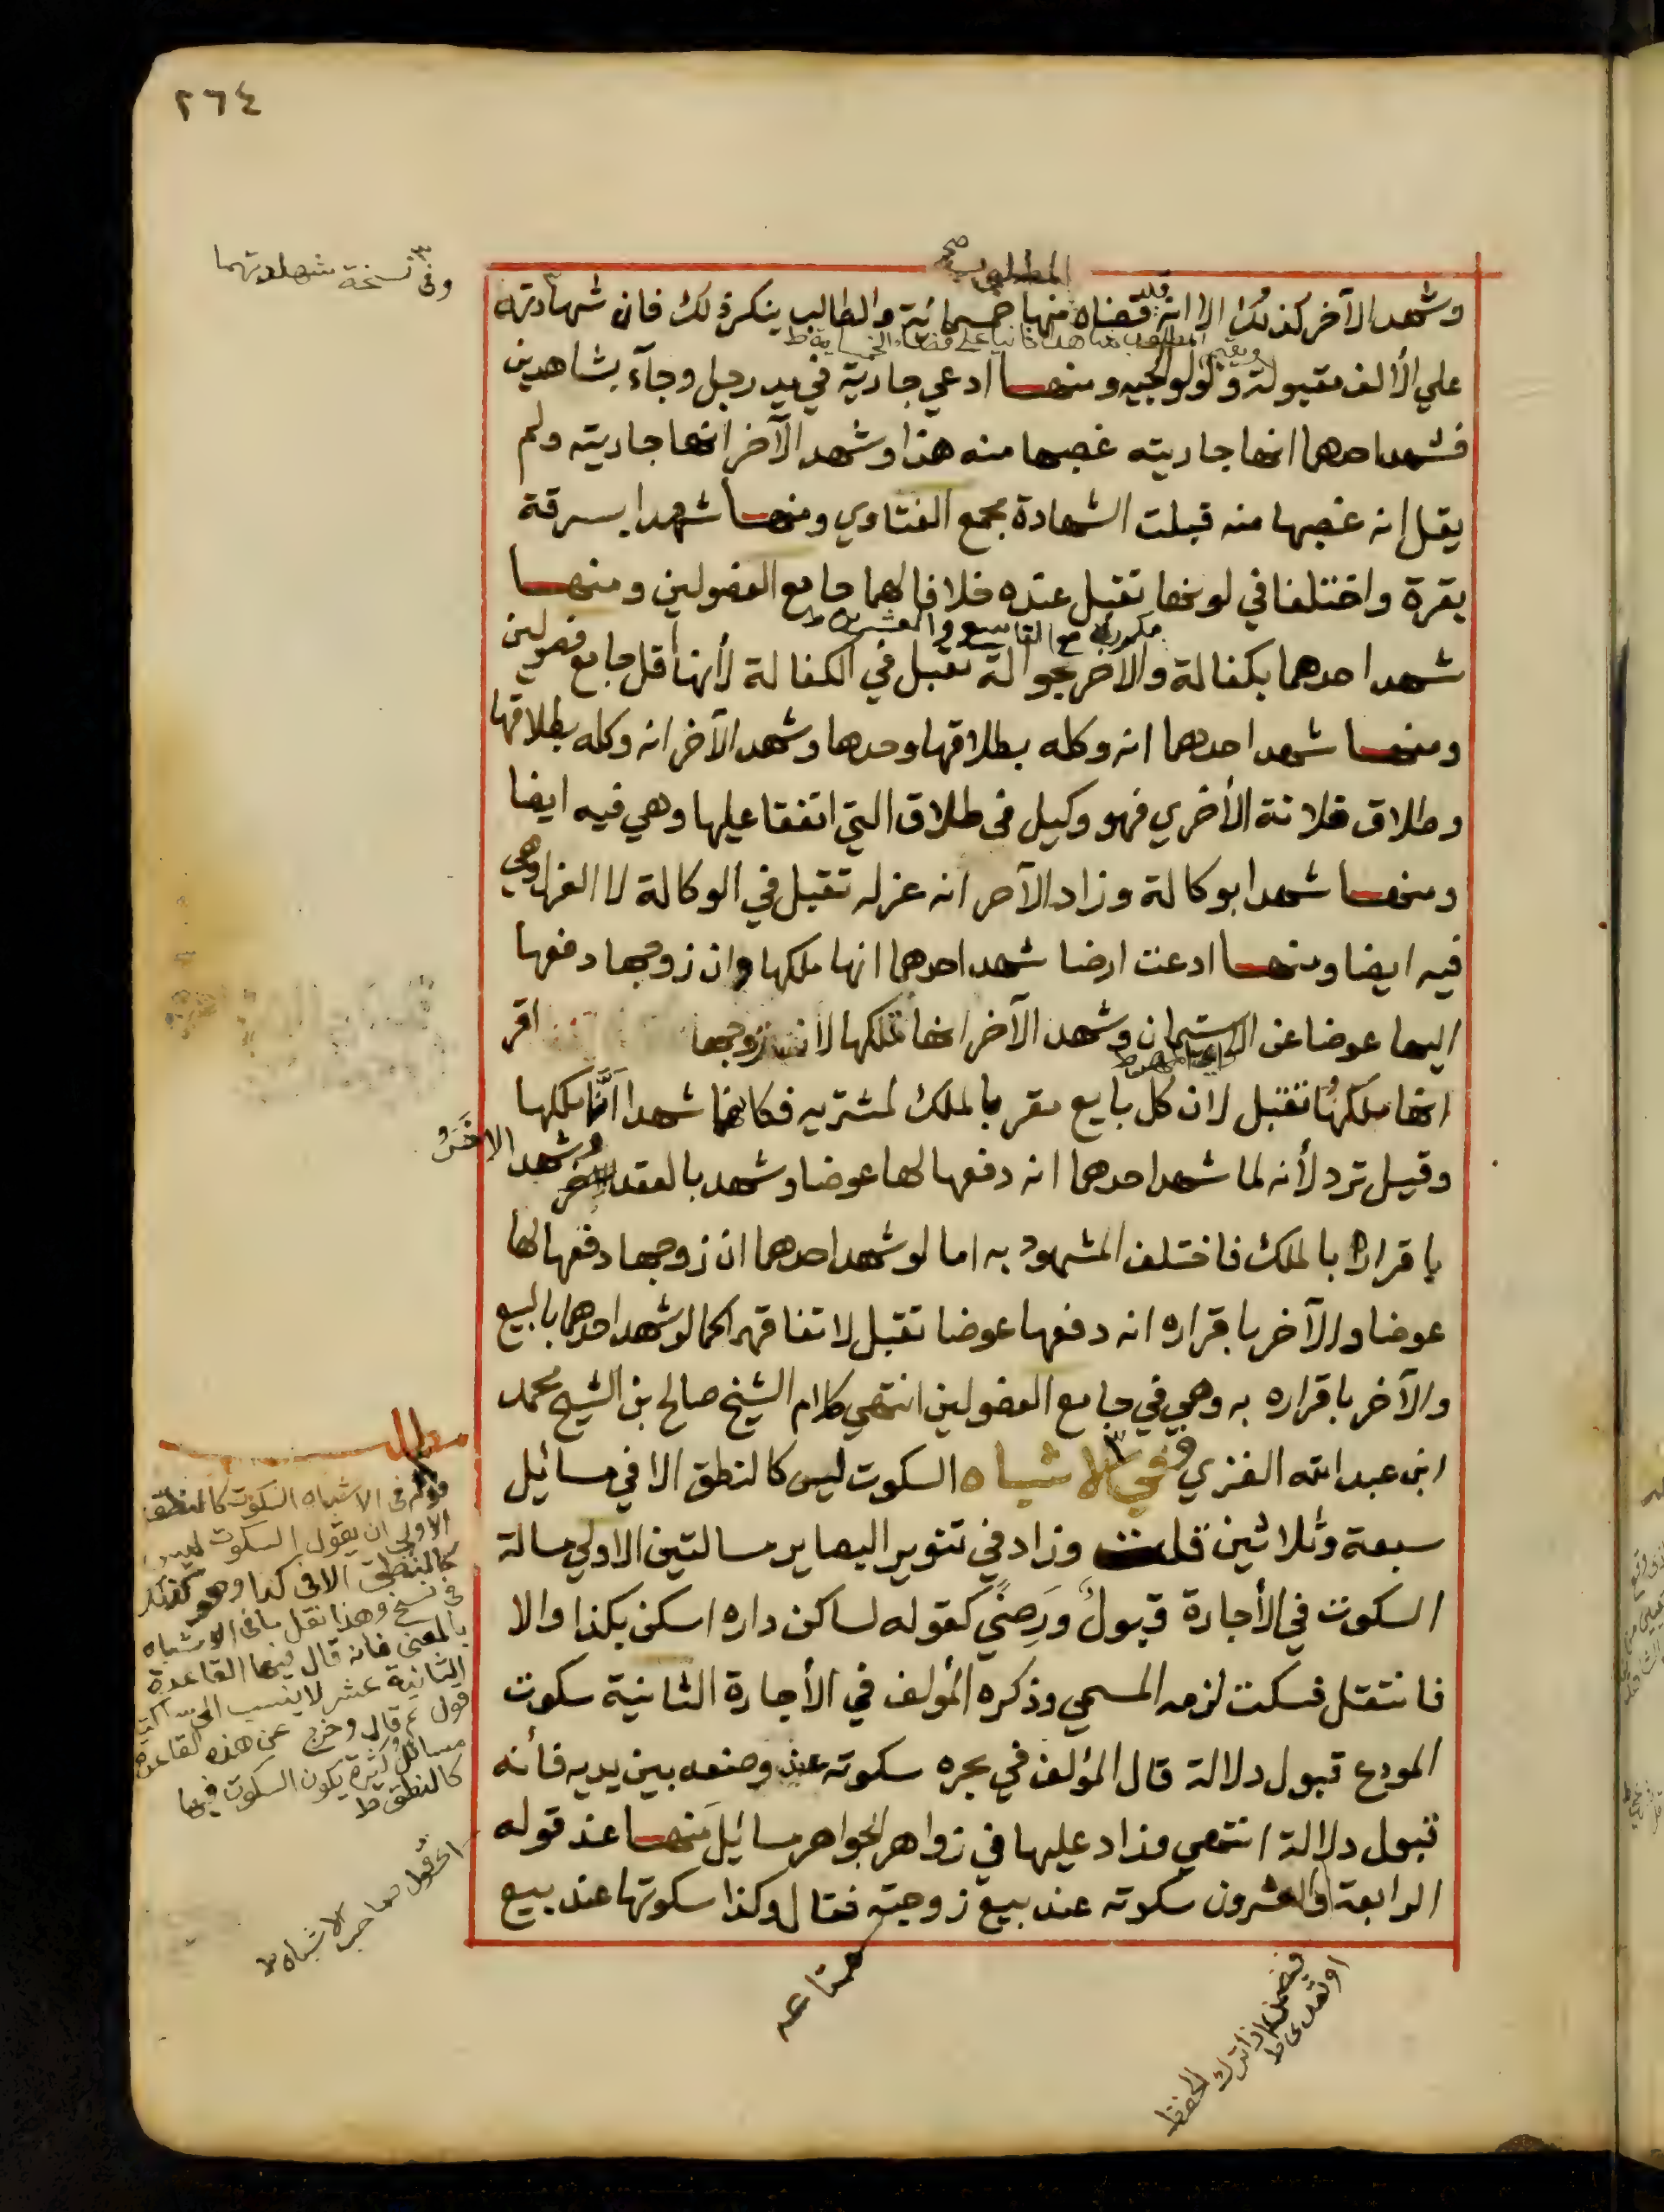 ٢٦٤
وفي نسخة شهادتهما
المطلوب صح
وشهد الآخر كذلك الا انه قضاه منها خمسمائة والطالب ينكر ذلك فان شهادته
على الألف مقبولة ولوالجيه ومنها ادعي جارية في يد رجل وجآء بشاهدين
فشهد احدهما انها جاريته غصبها منه هذا وشهد الآخر انها جاريته ولم
يقل انه غصبها منه قبلت الشهادة مجمع الفتاوي ومنها شهدا بسرقة
بقرة واختلفا في لونها تقبل عنده خلافا لهما جامع الفصولين ومنها
مكررة مع التاسع والعشرين ط
شهد احدهما بكفالة والاخر بحوالة تقبل في الكفالة لأنها اقل جامع فصولين
ومنها شهد احدهما انه وكله بطلاقها وحدها وشهد الآخر انه وكله بطلاقها
وطلاق فلانة الأخري فهو وكيل في طلاق التي اتفقا عليها وهي فيه ايضا
ومنها شهدا بوكالة وزاد الآخر انه عزله تقبل في الوكالة لا العزل وهي
فيه ايضا ومنها ادعت ارضا شهد احدهما انها ملكها وان زوجها دفعها
اليها عوضا عن الدستيمان وشهد الآخر انها تملكها لان زوجها اقر
انها ملكها تقبل لان كل بايع مقر بالملك لمشتريه فكانهما شهدا انها ملكها
وقيل ترد لأنه لما شهد احدهما انه دفعها لها عوضا وشهد بالعقد وشهد الاخر
باقراره بالملك فاختلف المشهود به اما لو شهد احدهما ان زوجها دفعها لها
عوضا والآخر باقراره انه دفعها عوضا تقبل لاتفاقهما كما لو شهد احدهما بالبيع
والآخر باقراره به وهي في جامع الفصولين انتهي كلام الشيخ صالح بن الشيخ محمد
ابن عبد الله الغزي وفي الاشباه السكوت ليس كالنطق الا في مسائيل
سبعة وثلاثين قلت وزاد في تنوير البصاير مسالتين الاولي مسالة
السكوت في الأجارة قبول ورضي كقوله لساكن داره اسكن بكذا والا
فانتقل فسكت لزمه المسمي وذكره المؤلف في الأجارة الثانية سكوت
المودع قبول دلالة قال المؤلف في بحره سكوته عند وضعه بين يديه فأنه
قبول دلالة انتهي وزاد عليها في زواهر الجواهر مسائيل منها عند قوله
الرابعة والعشرون سكوته عند بيع زوجته فقال وكذا سكوتها عند بيع
مطلب
قوله في الاشباه السكوت كالنطق
الاولي ان يقول السكوت ليس
كالنطق الا في كذا وهو كذلك
في نسخ وهذا نقل ما في الاشباه
بالمعني فانه قال فيها القاعدة
الثانية عشر لا ينسب الي ساكت
قول ثم قال وخرج عن هذه القاعدة
مسائل كثيرة يكون السكوت فيها
كالنطق ط
اي قول صاحب الاشباه ط
فيضمن اذا ترك الحفظ
او تعدى ط